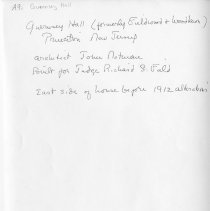 A71 Guernsey Hall
Guernsey Hall (formerly Fieldwood & Woodlawn)
Princeton New Jersey
architect John Notman
Built for Judge Richard S. Field
East side of house before 1912 alterations